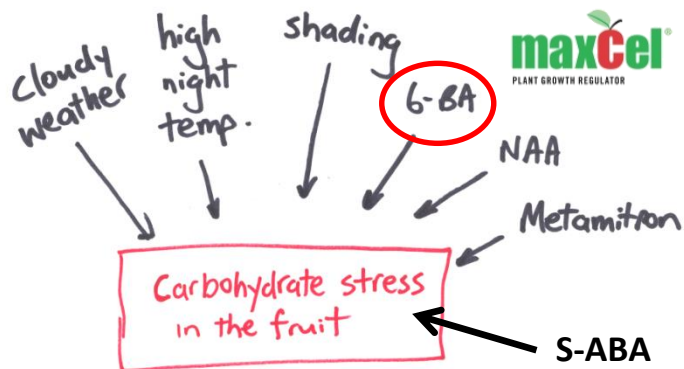 cloudy
weather
high
night
temp.
shading
maxCel®
PLANT GROWTH REGULATOR
6-BA
NAA
Metamitron
Carbohydrate stress
in the fruit
S-ABA